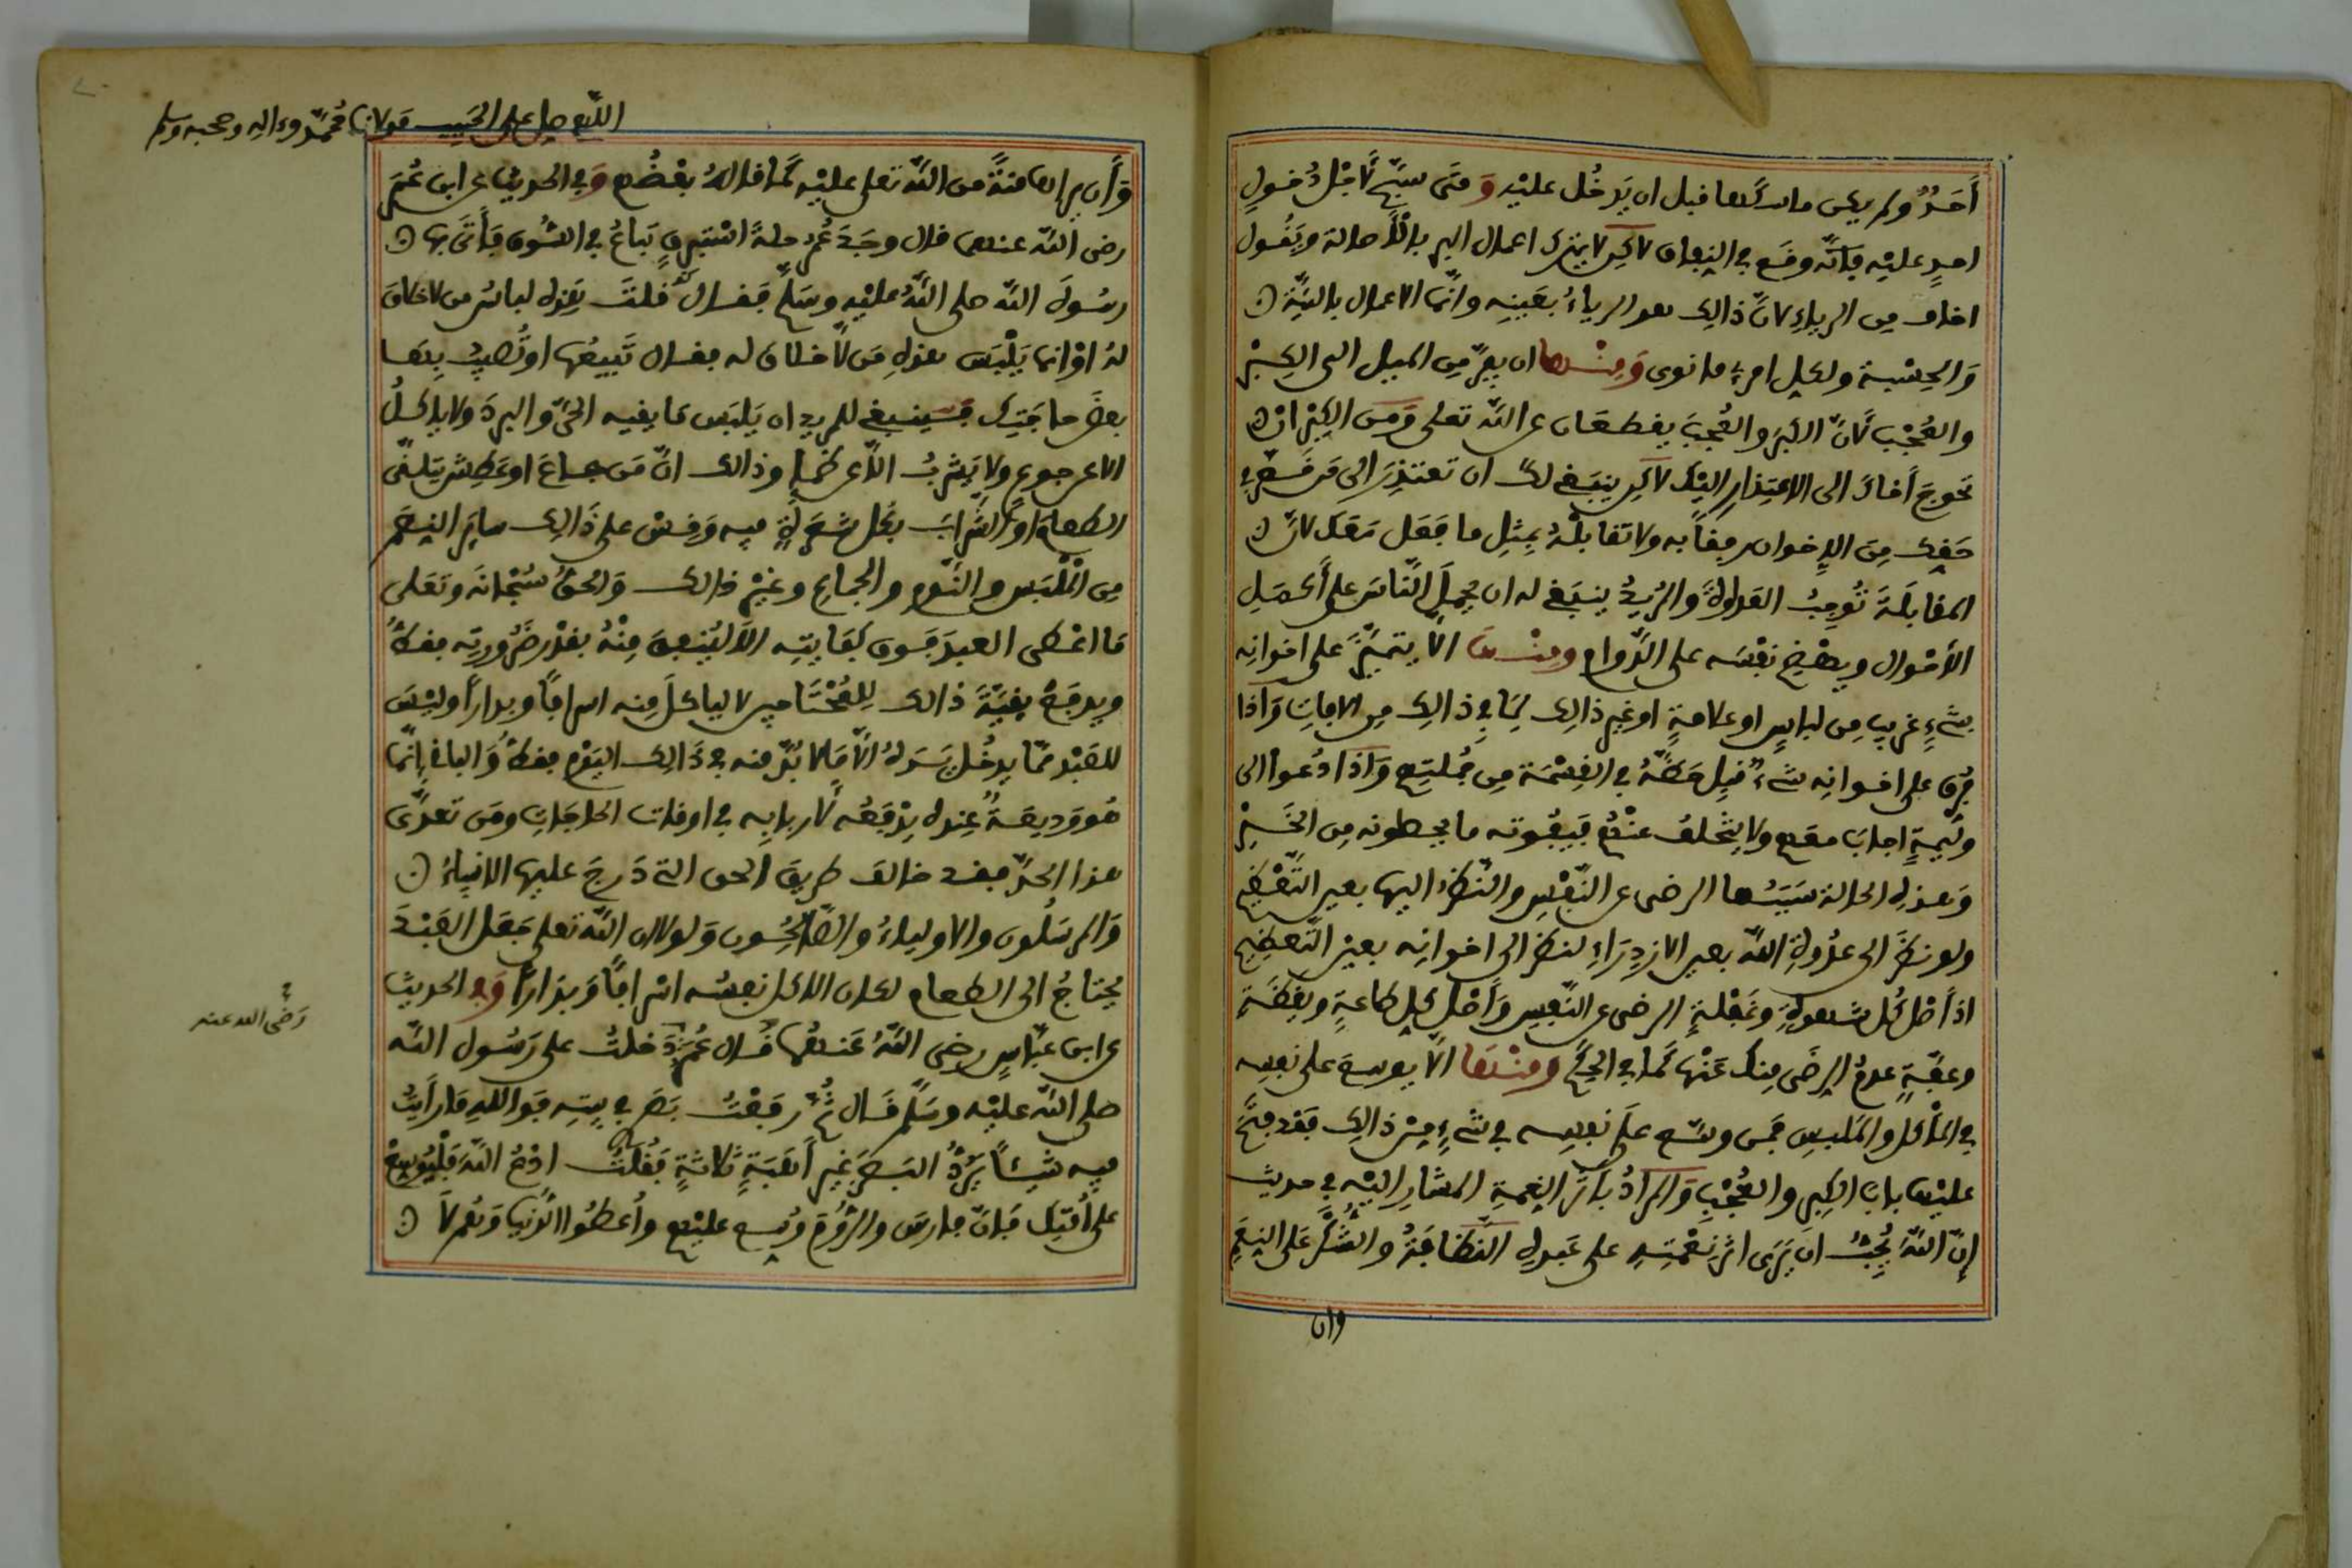 أَحَدٌ ولم يكن ماسكها قبل ان يَدخُل عليْه وَمَتى سبّح لأجْل دُخولِ
احدٍ عليْه فإنّه وقع في النفاق لاكن لا يترك اعمال البر بالأصالة ويَقُول
اخاف من الرياءِ لانّ ذالك هو الرياءُ بعَينِه وانّما الاعمال بالنيّة
وَالحِسْبة ولكل امرءٍ ما نوى وَمنْها ان يفرّ مِن الميل الى الكبْر
والعُجْب لأنّ الكبْرَ والعُجبَ يقطعَان عن اللّه تعلى وَمن الكِبْر ان
تحوجَ أخاك الى الاعتِذار اليْك لاكن ينبَغِي لك ان تعتذرَ الى مَن قصّر في
حَقك مِن الإخوان رفقاً به ولا تقابلْهُ بمثلِ ما فعَل مَعَك لانّ
المقابلَةَ تُوجِبُ العَداوةَ والمريدُ ينبَغي له ان يُحمِلَ النّاسَ على أكملِ
الأحْوال ويهْضِم نفْسَه على الدّوام ومنْها الاّ يتميّزَ على اخوانِه
بشيءٍ غريب مِن لباسٍ او علامةٍ او غير ذالك لمَا في ذالك مِن الافات وَاذا
فرق على اخوانِه شيءٌ قبِل حَظَّهُ في القِسْمَة مِن جُملتِهم وَاذا دُعوا الى
وليمةٍ اجابَ معهم ولا يتخلفُ عنْهم فيفُوته ما يعطونه مِن الخَيْرْ
وَهذه الحالة سَبَبُها الرضى عن النّفْس والنّظر اليها بعين التّعْظِيم
ولو نظَرَ الى عدُوة اللّه بعين الازدِرَاءِ لنظر الى اخوانِه بعين التّعظِيم
اذ أصْل كُل شهوةٍ وغَفلةٍ الرضى عن النّفس وَأصْل كل طاعةٍ ويقظَةٍ
وعفّةٍ عدمُ الرِضَى مِنك عَنْها كمَا في الحِكَم ومنْهَا الاّ يوسِعَ على نفسِه
في المأْكل والمَلبس فمن وسّع علَى نفسِه في شيءٍ مِنْ ذالِك فقد فتَحَ
عليْها باب الكِبر والعُجْب وَالمرادُ بأثر النِعمةِ المشارِ اليْه في حديث
إنّ اللّهَ يُحِبُّ ان يَرَى اثر نِعْمَتِهِ على عَبدِه النّظَافَةُ والشُكْرُ عَلى النِعَم
وان
اللّهم صل على الحَبِيب مَولانا مُحَمَّد وءاله وصحبه وسلم
وَأن يراها منّةً من اللّه تعلى عليْه كَما قالهُ بعْضُهم وَفي الحديث عن ابن عُمَرَ
رضى اللّه عنهما قال وجَدَ عُمر حلة اسْتبرقٍ تباعُ في السُّوق فأَتَى بها
رسُولَ اللّه صلى اللّهُ عليْه وسَلّم فقال قلتَ هَذه لباسُ من لا خلاق
لهُ اوْ انما يَلْبَس هذه مَن لاّ خلاق له فقال تَبيعُها او تُصِيبُ بِهَا
بعضَ حاجَتِك فينبغي للمريد ان يَلبَس ما يقيه الحَرّ والبردَ ولا ياكلُ
الا عن جوع ولا يَشربُ الاّ عن ظَما وذالك انّ مَن جاعَ او عَطِش يتلقّى
الطعامَ او الشّرابَ بكُل شعرةٍ فيه وَقِسْ على ذَالك سايرَ النِعَم
مِن المْلبَس والنّوم والجماعِ وغيْر ذالك وَالحقُ سُبْحانَه وتَعَلى
مَا اعْطى العبدَ فَوق كفَايتِه الاّ ليُنفِق مِنْهُ بقدْر ضَرُورتِه فقطْ
ويدفعَ بقيّةَ ذالك لِلمُحْتَاجين لا لياكلَ مِنه اسرافًا وبداراً وليْسَ
للعَبْد ممّا يدخُل يَدَهُ الاّ مَالا بُدّ منه في ذَالك اليَوْم فقطْ وَالباقي إنّما
هُو وَديعَةٌ عِنده يدْفعُه لأربابِه في اوقات الحاجات ومَن تَعدّى
هذا الحدّ فقد خالفَ طريقَ الحق التي دَرجَ عليها الانبياءُ
وَالمرسَلُون والاولياءُ والصّالحُون وَلولا ان اللّهَ تعلى جَعَل العَبْدَ
يُحتاجُ الى الطعام لكان الاكل نفسُه اسْرافًا وَبذاراً وَفي الحديث
عن ابن عبّاس رضى اللّهُ عَنهُما قَال عُمَر دَخلتُ على رَسُول اللّه
رَضى الله عنه
صلى اللّه عليْه وسَلّم قال ثُمّ رفعْتُ بَصَري في بيتِه فَوَاللّهِ مَا رأيْتُ
فيه شَيئاً يَردّ البَصَرَ غير أَهَبَةٍ ثلاثةٍ فقُلتُ ادْعُ اللّهَ فَلْيُوسِعْ
على أمّتِك فإنّ فارسَ والرُّومَ وُسِع عليْهم وأُعطُوا الدّنيا وَهُم لاَ